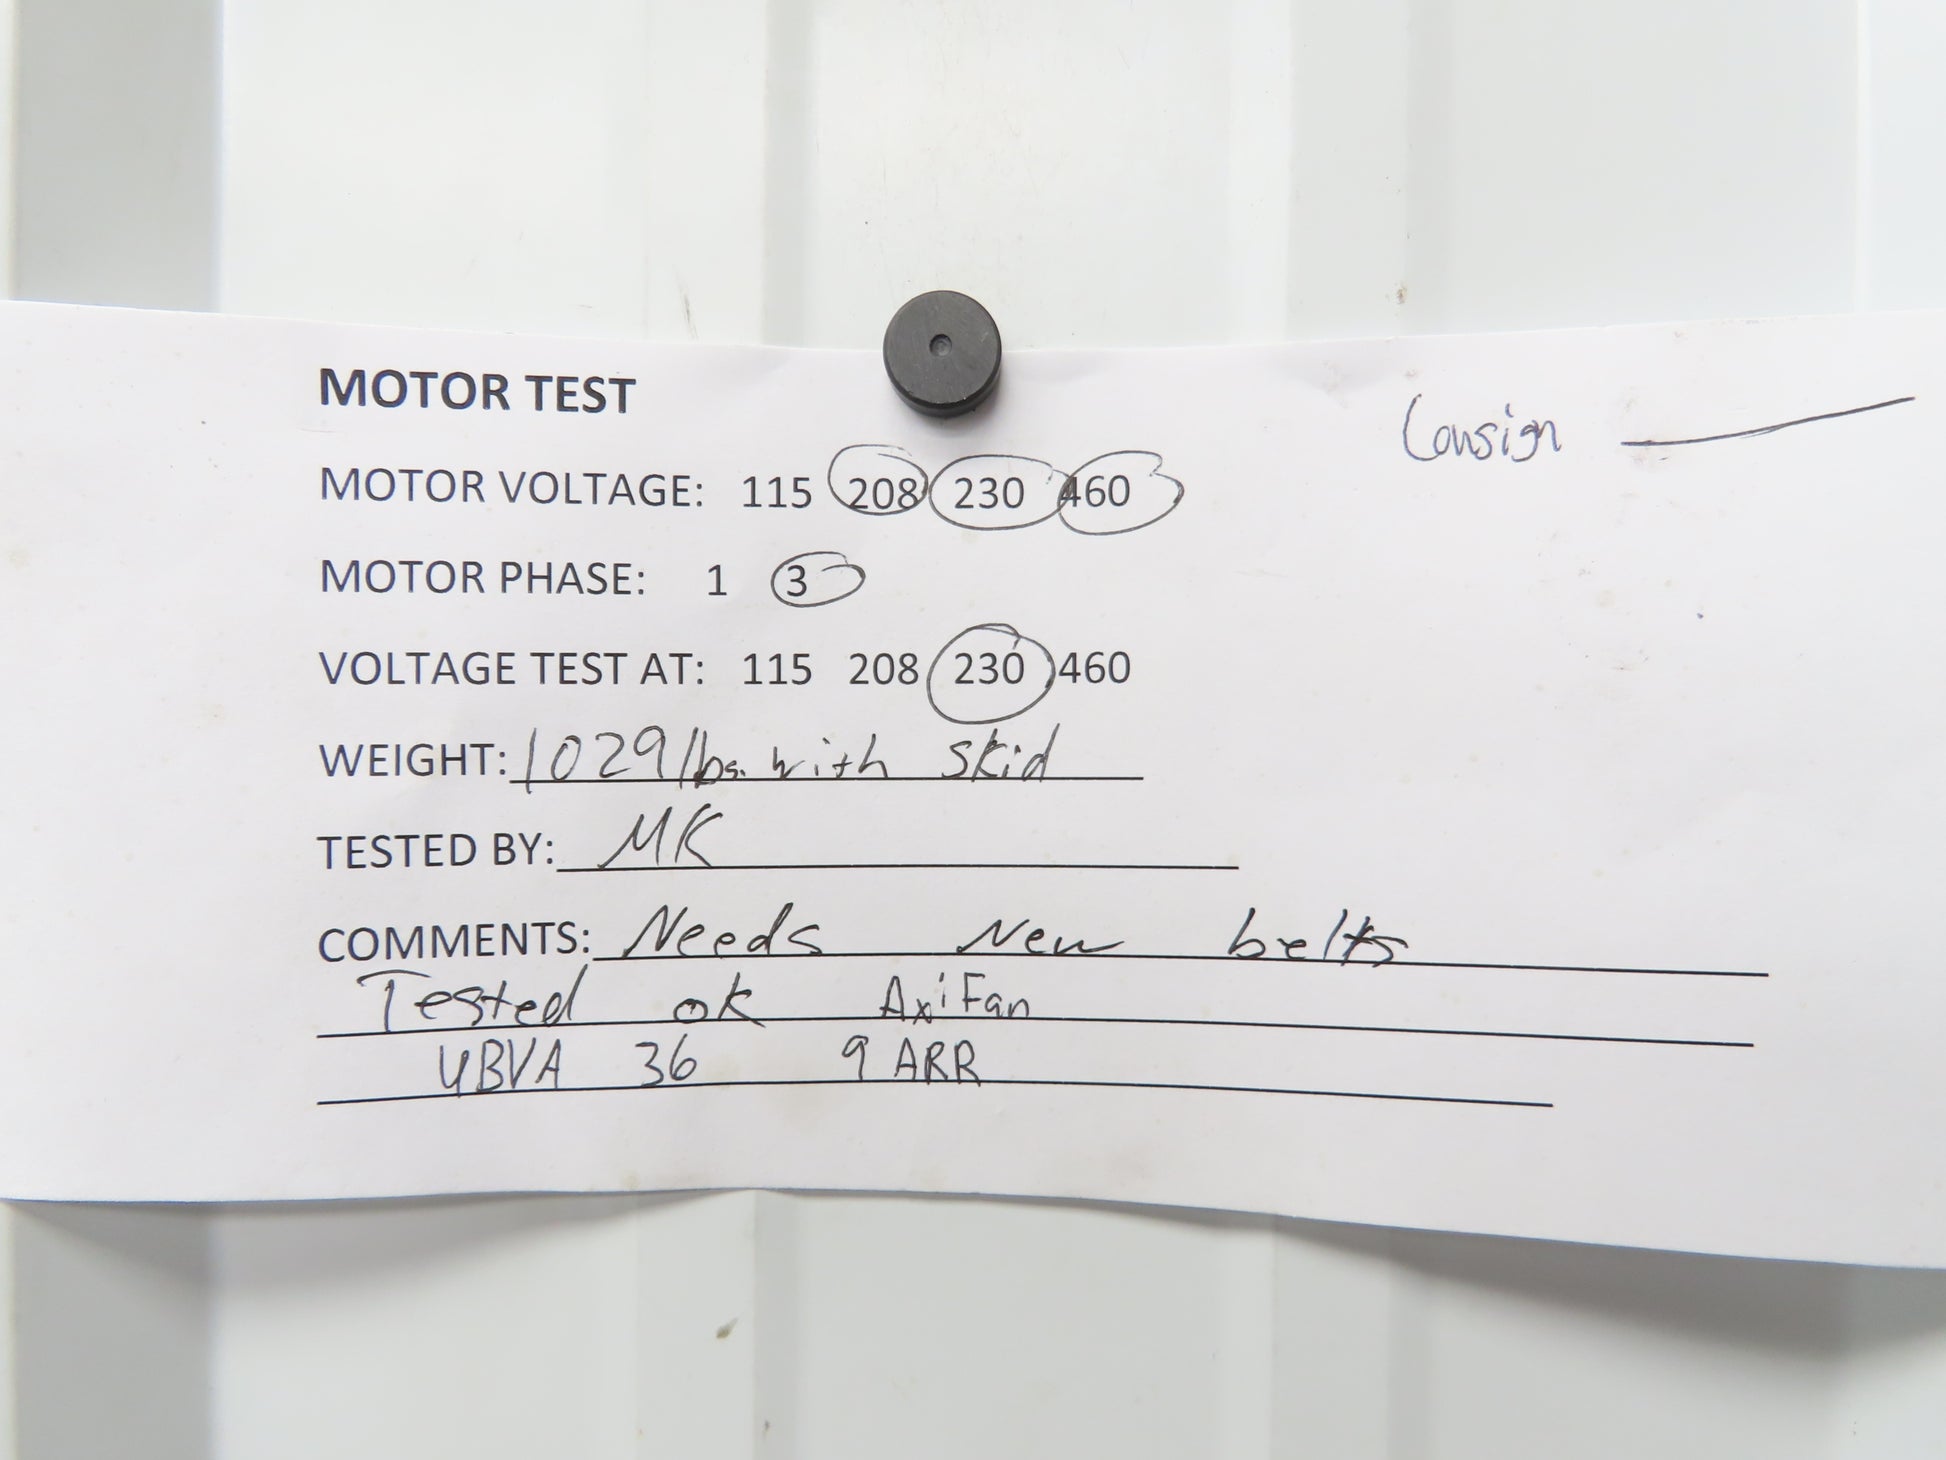 MOTOR TEST
Consign
MOTOR VOLTAGE: 115 208 230 460
MOTOR PHASE: 1 3
VOLTAGE TEST AT: 115 208 230 460
WEIGHT: 1029 lbs. with skid
TESTED BY: MK
COMMENTS: Needs New belts
Tested ok AxiFan
YBVA 36 9 ARR